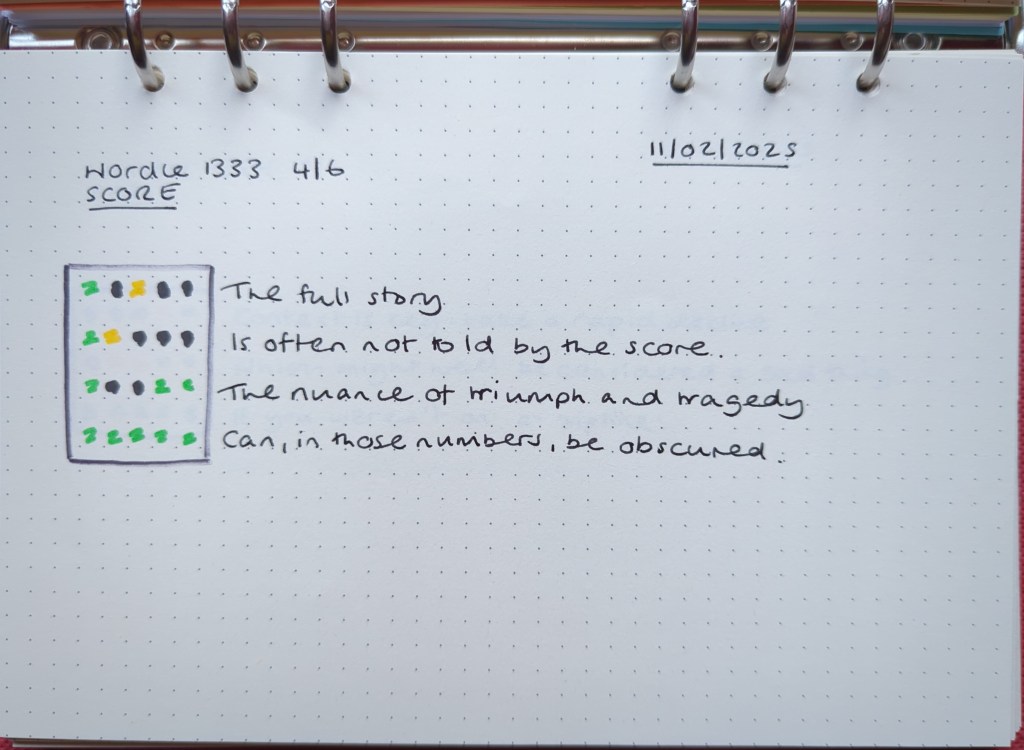 Wordle 1333 4/6
SCORE
11/02/2025
The full story
Is often not told by the score.
The nuance of triumph and tragedy
Can, in those numbers, be obscured.